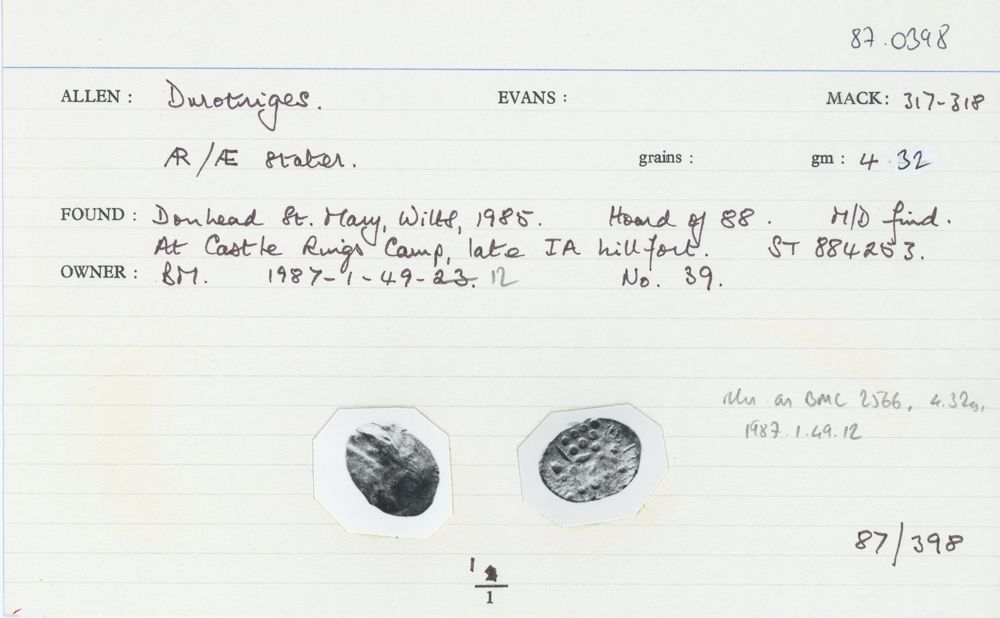 87.0398
ALLEN : Durotriges. EVANS : MACK: 317-318
ÆR/Æ stater. grains : gm : 4.32
FOUND : Donhead St. Mary, Wilts, 1985. Hoard of 88. M/D find.
At Castle Rings Camp, late IA hillfort. ST 884253.
OWNER : BM. 1987-1-49-23. 12 No. 39.
illus. as BMC 2566, 4.32g,
1987.1.49.12
87/398
1
1